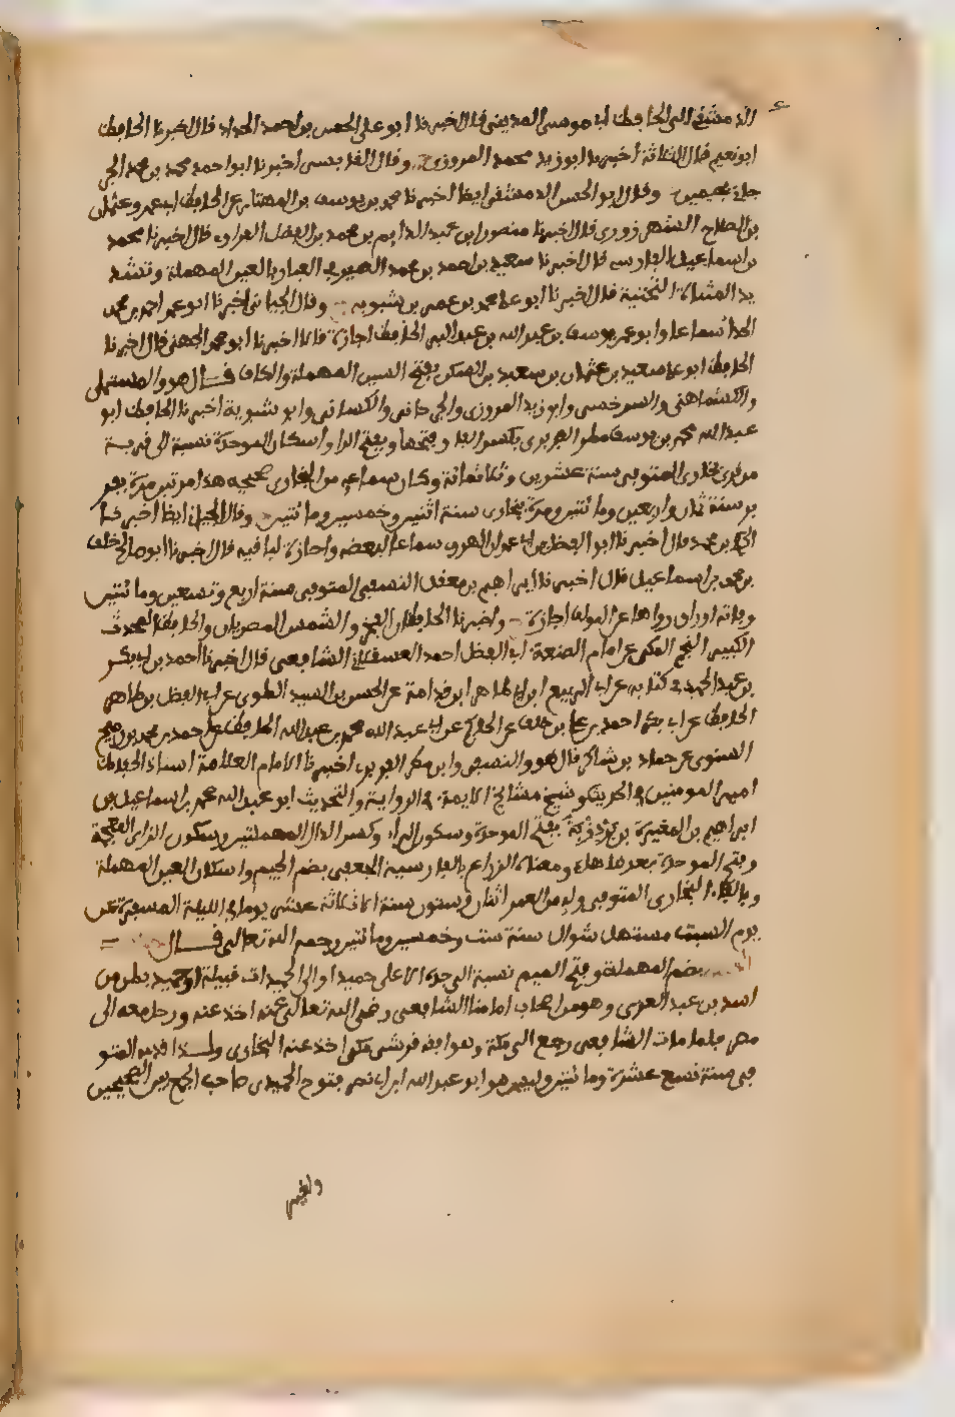 الدمشقي الى الحافظ ابي موسى المديني قال اخبرنا ابو علي الحسن بن احمد الحداد قال اخبرنا الحافظ
ابو نعيم قال الثلاثة اخبرنا ابو زيد محمد المروزي وقال القابسي اخبرنا ابو احمد محمد بن محمد الجر
جاني بجيمين وقال ابو الحسن الدمشقي ايضا اخبرنا محمد بن يوسف بن المهتار عن الحافظ ابي عمرو عثمان
بن الصلاح الشهرزوري قال اخبرنا منصور بن عبد الدايم بن محمد بن الفضل الفراوي قال اخبرنا محمد
بن اسماعيل الفارسي قال اخبرنا سعيد بن احمد بن محمد الصيرفي العيار بالعين المهملة وتشد
يد المثناة التحتية قال اخبرنا ابو علي محمد بن عمر بن شبويه وقال الجياني اخبرنا ابو عمر احمد بن محمد
الحذا سماعا وابو عمر يوسف بن عبد الله بن عبد البر الحافظ اجازة قالا اخبرنا ابو محمد الجهني قال اخبرنا
الحافظ ابو علي سعيد بن عثمان بن سعيد بن السكن بفتح السين المهملة والكاف قال هو والمستملي
والكشماهني والسرخسي وابو زيد المروزي والجرجاني والكساني وابو شبوية اخبرنا الحافظ ابو
عبد الله محمد بن يوسف مطر الفربري بكسر الفا وفتحها وبفتح الرا واسكان الموحدة نسبة الى قرية
من قرى بخارى المتوفى سنة عشرين وثلاثمائة وكان سماعه من البخاري صحيحه هذا مرتين مرة بفر
بر سنة ثمان واربعين ومائتين ومرة ببخارى سنة اثنين وخمسين ومائتين وقال الجياني ايضا اخبرنا
الحكم بن محمد قال اخبرنا ابو الفضل بن ابي عمران الهروي سماعا لبعضه واجازة لباقيه قال اخبرنا ابو صالح خلف
بن محمد بن اسماعيل قال اخبرنا ابراهيم بن معقل النسفي المتوفى سنة اربع وتسعين ومائتين
وفاته اوراق رواها عن المولف اجازة واخبرنا الحافظان الفخر والشمس المصريان والحافظ المحدث
الكبير النجم المكي عن امام الصنعة ابي الفضل احمد العسقلاني الشافعي قال اخبرنا احمد بن ابي بكر
بن عبد الحميد في كتابه عن ابي الربيع ابن ابي طاهر ابن قدامة عن الحسن بن السيد العلوي عن ابي الفضل بن طاهر
الحافظ عن ابي بكر احمد بن علي بن خلف عن الحاكم عن ابي عبد الله محمد بن عبد الله الحافظ عن احمد بن محمد بن رميح
النسوي عن حماد بن شاكر قال هو والنسفي وابن مطر الفربري اخبرنا الامام العلامة استاذ الحفاظ
امير المومنين في الحديث و شيخ مشائخ الايمة في الرواية والتحديث ابو عبد الله محمد بن اسماعيل بن
ابراهيم بن المغيرة بن بردزبة بفتح الموحدة وسكون الراء وكسر الدال المهملتين وسكون الزاي المعجمة
وفتح الموحدة بعدها هاء ومعناه الزراع بالفارسية الجعفي بضم الجيم واسكان العين المهملة
وبالفاء البخاري المتوفى وله من العمر اثنان وستون سنة الا ثلاثة عشر يوما في الليلة المسفرة عن
يوم السبت مستهل شوال سنة ست وخمسين ومائتين رحمه الله تعالى قال
بضم المهملة وفتح الميم نسبة الى جده الاعلى حميد او الى الحميدات قبيلة او حميد بطن من
اسد بن عبد العزى وهو من اصحاب امامنا الشافعي رضي الله تعالى عنه اخذ عنه ورحل معه الى
مصر فلما مات الشافعي رجع الى مكة وهو افقه قرشي مكي اخذ عنه البخاري ولـذا قدمه المتو
في سنة تسع عشرة ومائتين وليس هو ابو عبد الله ابن ابي نصر فتوح الحميدي صاحب الجمع بين الصحيحين
وليس